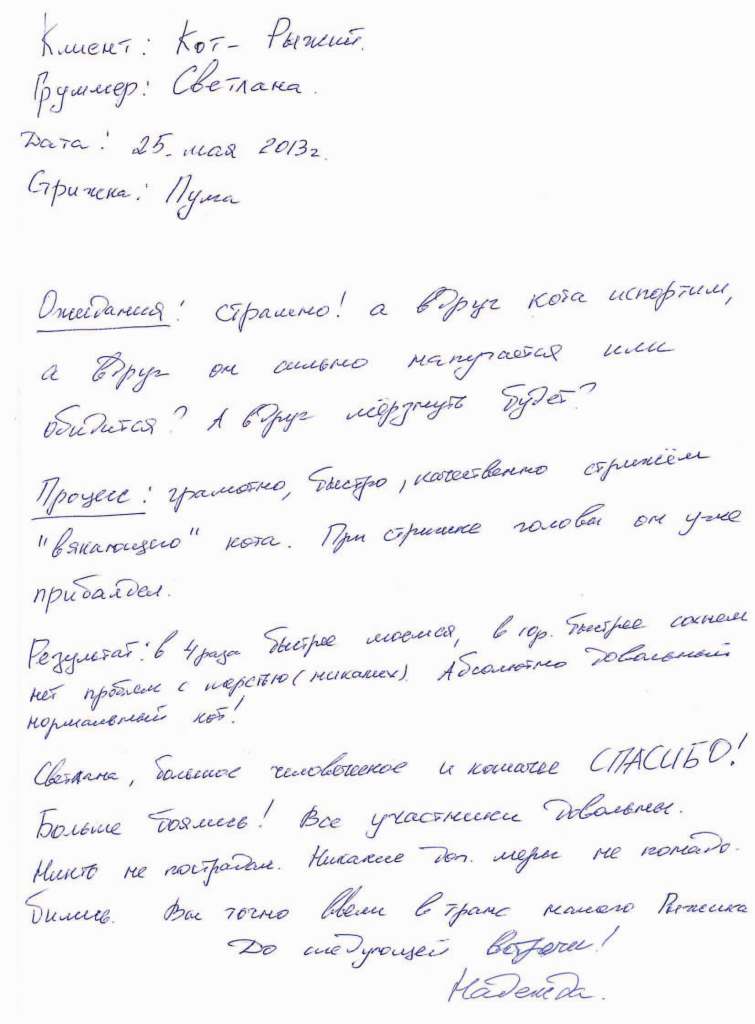 Клиент: Кот- Рыжий.
Груммер: Светлана.
Дата: 25. мая 2013г.
Стрижка: Пума
Ожидания: страшно! а вдруг кота испортим,
а вдруг он сильно напугается или
обидится? А вдруг мёрзнуть будет?
Процесс: грамотно, быстро, качественно стрижём
"вякающего" кота. При стрижке головы он уже
прибалдел.
Результат: в 4 раза быстрее моемся, в 10р. быстрее сохнем
нет проблем с шерстью (никаких). Абсолютно довольный
нормальный кот!
Светлана, большое человеческое и кошачье СПАСИБО!
Больше боялись! Все участники довольны.
Никто не пострадал. Никакие доп. меры не понадо-
бились. Вы точно ввели в транс нашего Рыжика
До следующей встречи!
Надежда.